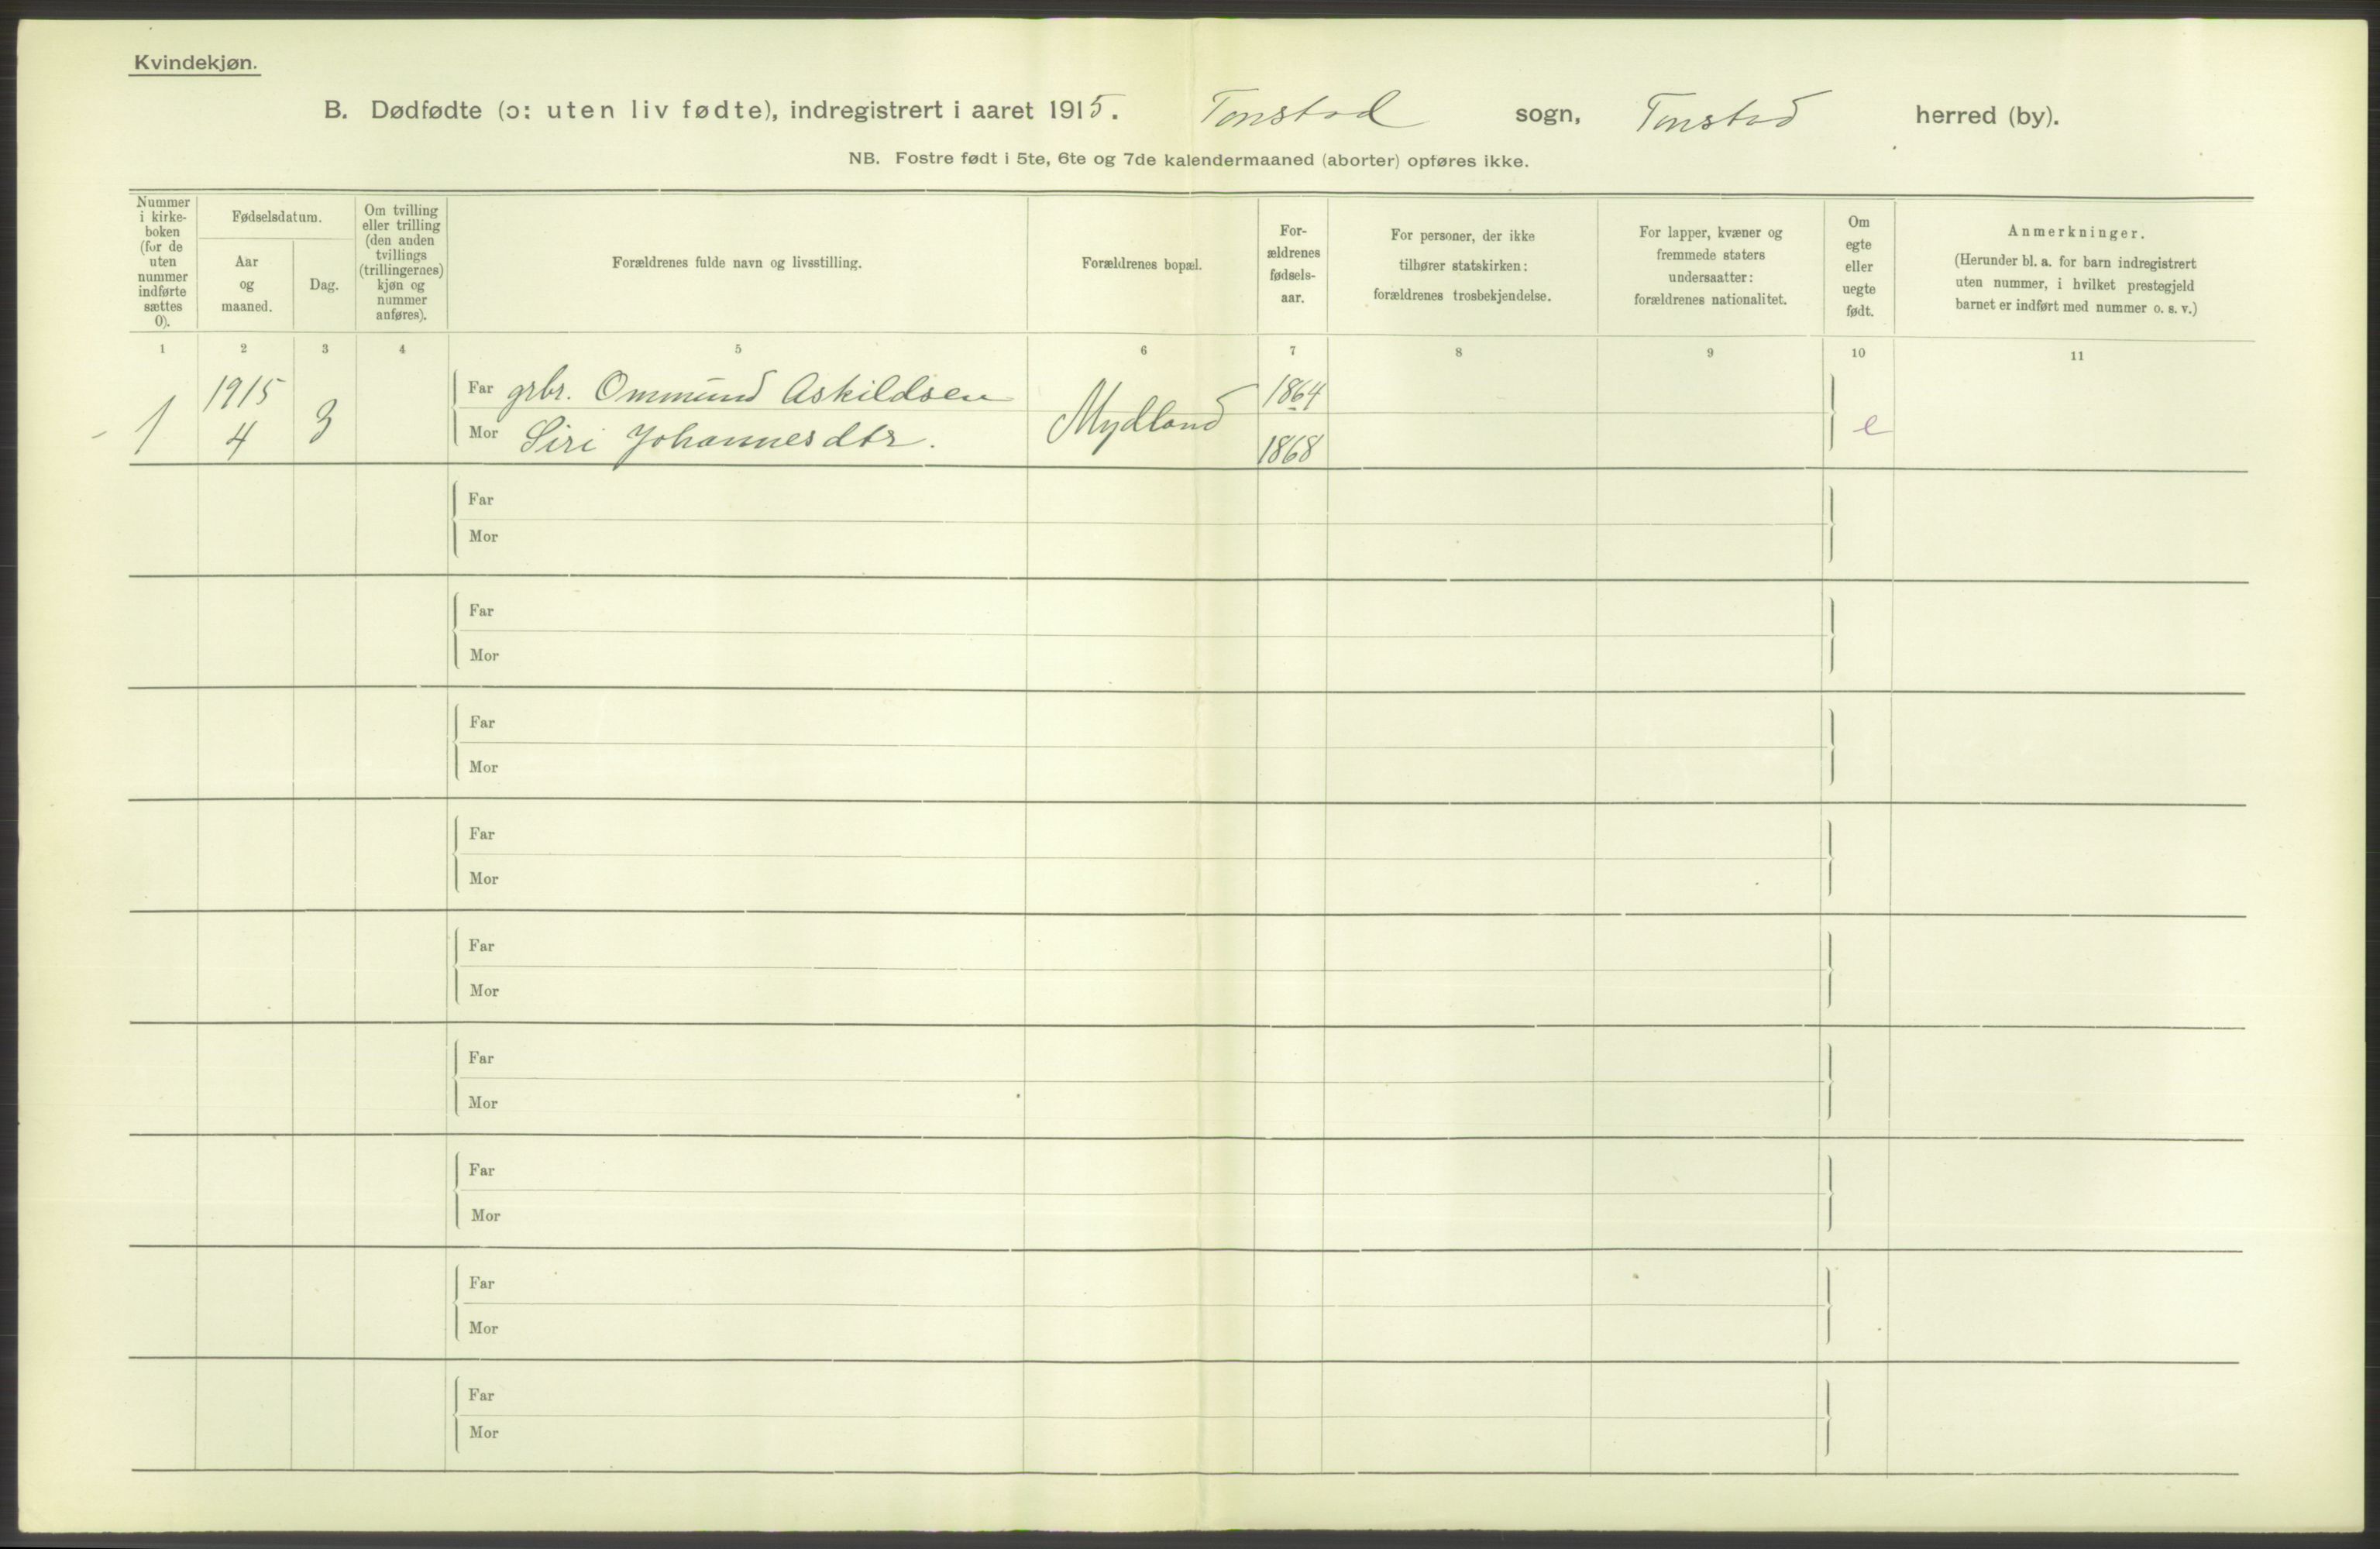 Kvindekjøn.
B. Dødfødte (ɔ: uten liv fødte), indregistrert i aaret 1915. Tonstad sogn, Tonstad herred (by).
NB. Fostre født i 5te, 6te og 7de kalendermaaned (aborter) opføres ikke.
Nummer
i kirke-
boken
(for de
uten
nummer
indførte
sættes
0).
Fødselsdatum.
Aar
og
maaned.
Dag.
Om tvilling
eller trilling
(den anden
tvillings
(trillingernes)
kjøn og
nummer
anføres).
Forældrenes fulde navn og livsstilling.
Forældrenes bopæl.
For-
ældrenes
fødsels-
aar.
For personer, der ikke
tilhører statskirken:
forældrenes trosbekjendelse.
For lapper, kvæner og
fremmede staters
undersaatter:
forældrenes nationalitet.
Om
egte
eller
uegte
født.
Anmerkninger.
(Herunder bl. a. for barn indregistrert
uten nummer, i hvilket prestegjeld
barnet er indført med nummer o. s. v.)
1 2 3 4 5 6 7 8 9 10 11
1
1915
4
3
Far grbr. Ommund Askildsen
Mor Siri Johannesdtr.
Mydland
1864
1868
e
Far
Mor
Far
Mor
Far
Mor
Far
Mor
Far
Mor
Far
Mor
Far
Mor
Far
Mor
Far
Mor